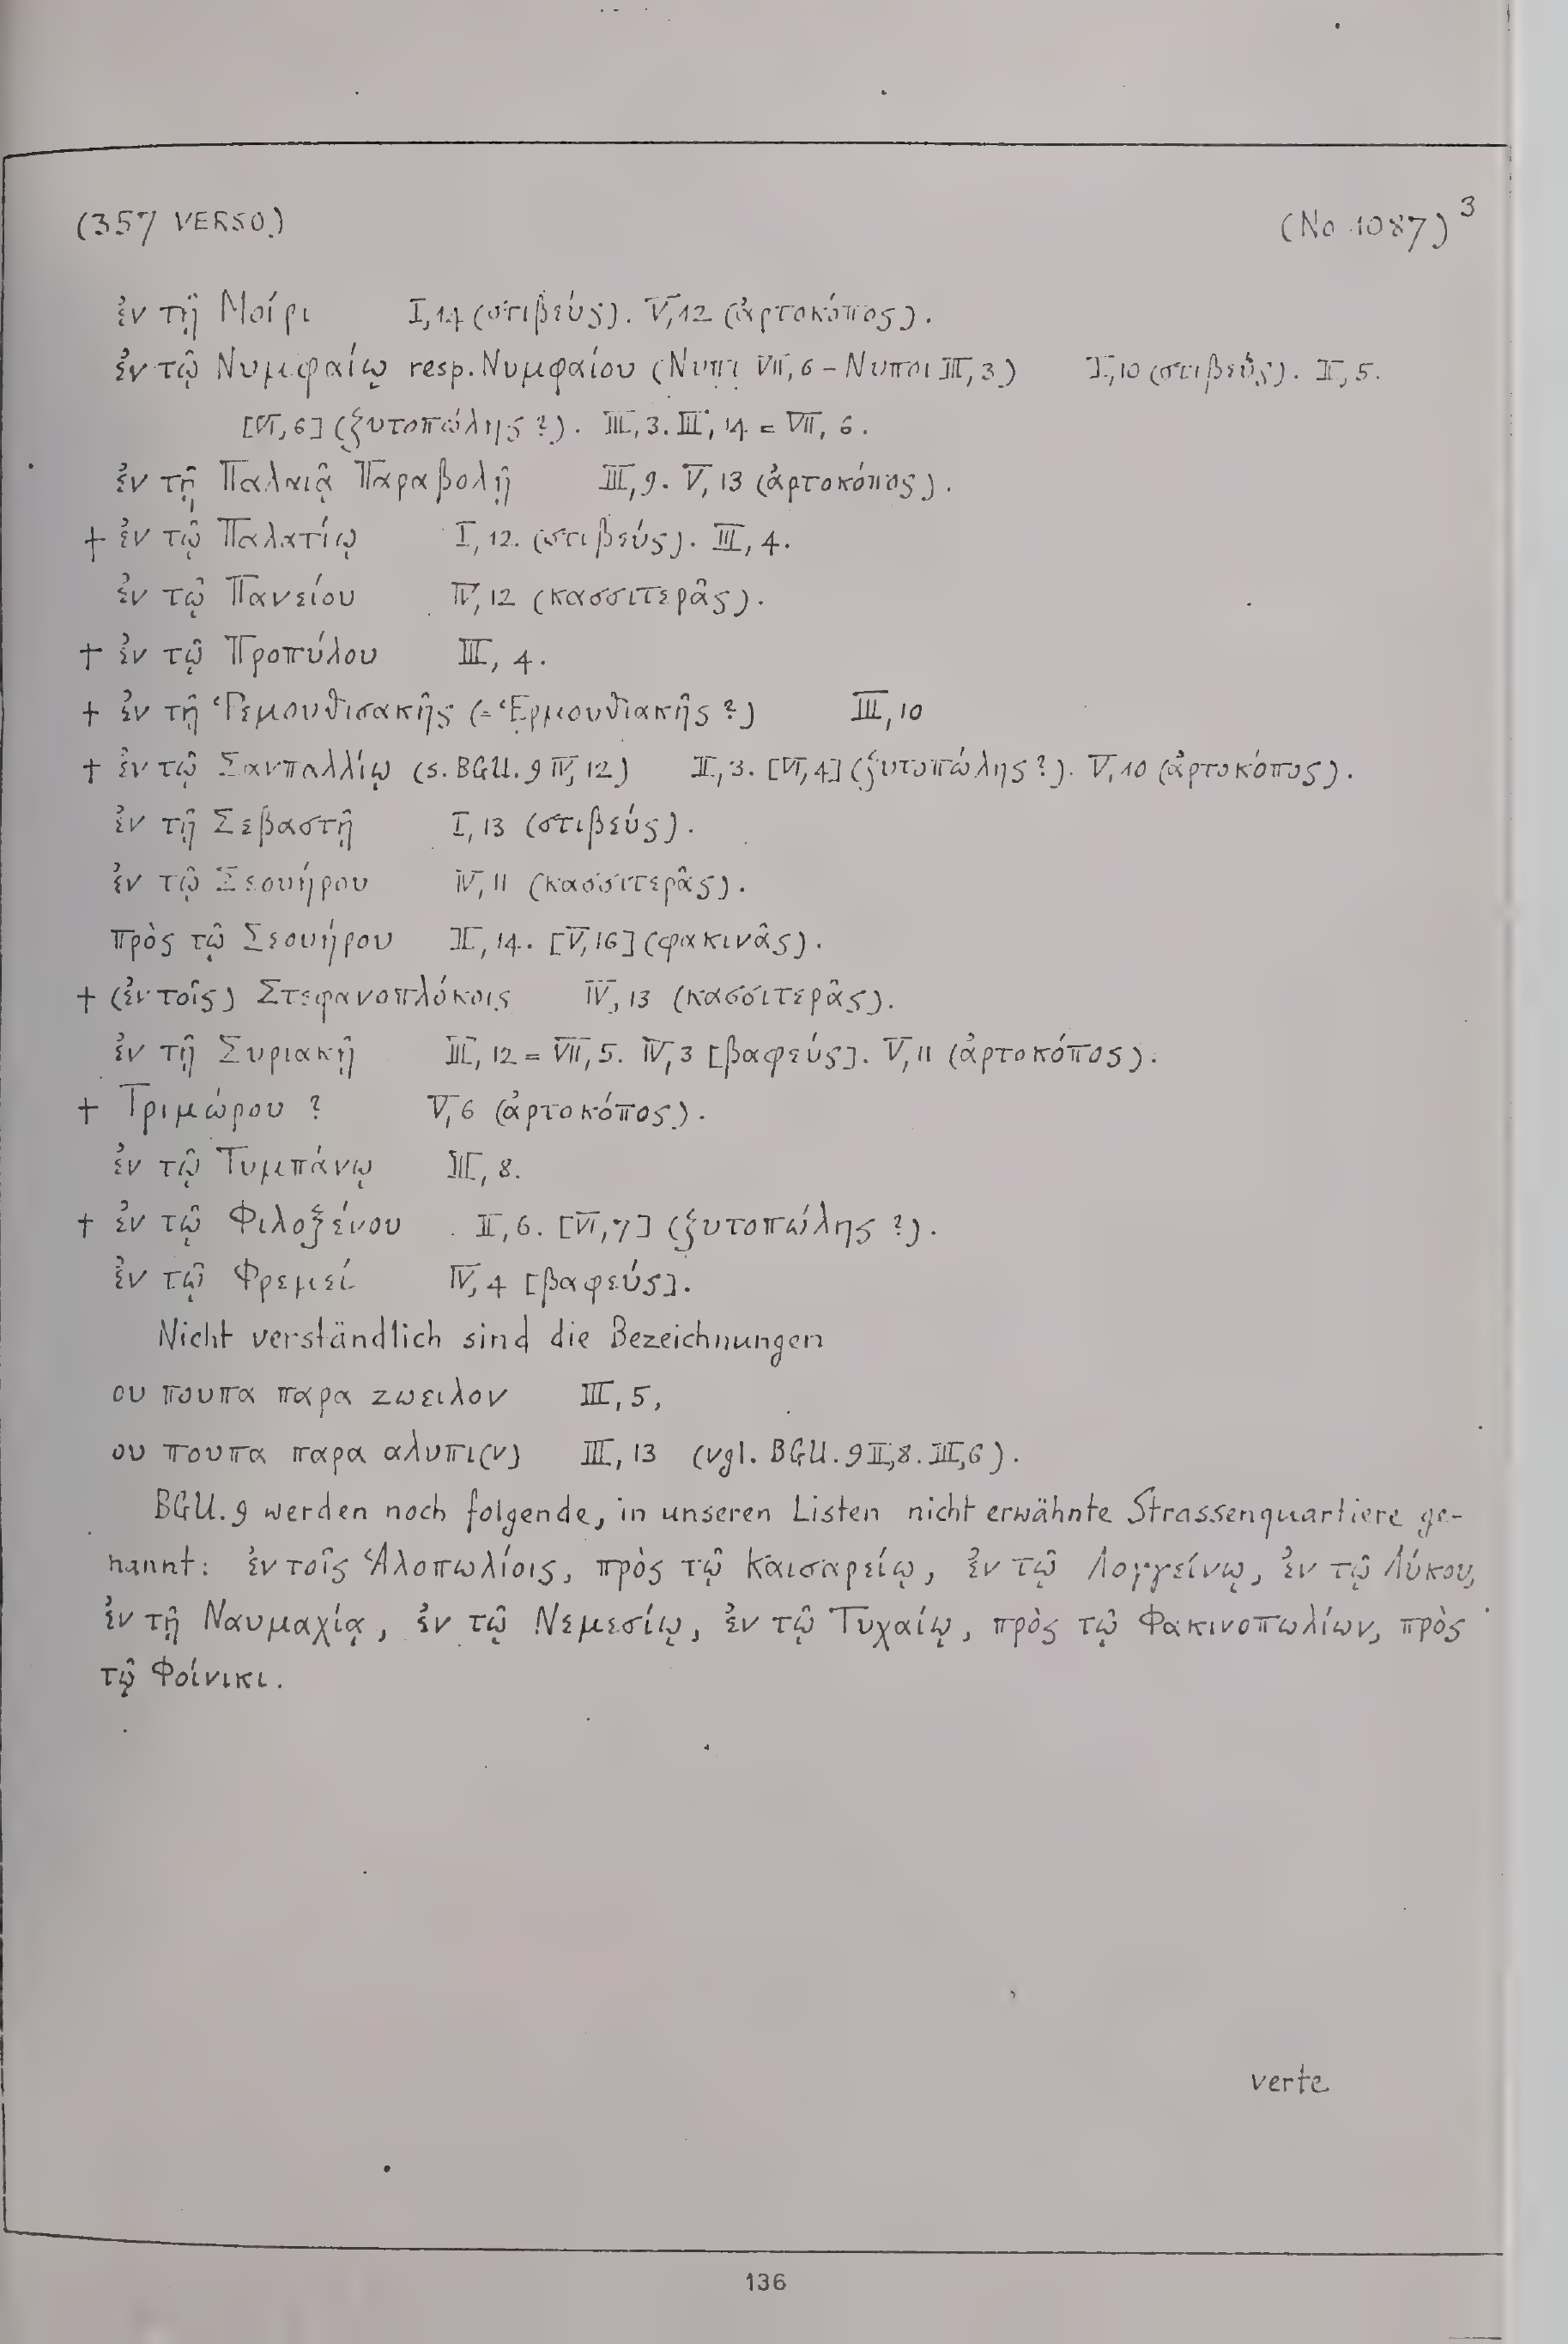 (357 VERSO) (No 1087) 3
ἐν τῇ Μοίρι I, 14 (στιβεύς). V, 12 (ἀρτοκόπος).
ἐν τῷ Νυμφαίῳ resp. Νυμφαίου (Νυπι VII, 6 – Νυποι III, 3) I, 10 (στιβεύς). II, 5.
[VI, 6] (ζυτοπώλης?). III, 3. III, 14 = VII, 6.
ἐν τῇ Παλαιᾷ Παραβολῇ III, 9. V, 13 (ἀρτοκόπος).
+ ἐν τῷ Παλατίῳ I, 12. (στιβεύς). III, 4.
ἐν τῷ Πανείου IV, 12 (κασσιτερᾶς).
+ ἐν τῷ Προπύλου III, 4.
+ ἐν τῇ Ῥεμουθισακῆς (= Ἑρμουθιακῆς?) III, 10
+ ἐν τῷ Σανπαλλίῳ (s. BGU. 9 IV, 12) II, 3. [VI, 4] (ζυτοπώλης?). V, 10 (ἀρτοκόπος).
ἐν τῇ Σεβαστῇ I, 13 (στιβεύς).
ἐν τῷ Σεουήρου IV, 11 (κασσιτερᾶς).
πρὸς τῷ Σεουήρου II, 14. [V, 16] (φακινᾶς).
+ (ἐν τοῖς) Στεφανοπλόκοις IV, 13 (κασσιτερᾶς).
ἐν τῇ Συριακῇ III, 12 = VII, 5. IV, 3 [βαφεύς]. V, 11 (ἀρτοκόπος).
+ Τριμώρου? V, 6 (ἀρτοκόπος).
ἐν τῷ Τυμπάνῳ III, 8.
+ ἐν τῷ Φιλοξένου II, 6. [VI, 7] (ζυτοπώλης?).
ἐν τῷ Φρεμεί IV, 4 [βαφεύς].
Nicht verständlich sind die Bezeichnungen
ου πουπα παρα ζωειλον III, 5,
ου πουπα παρα αλυπι(ν) III, 13 (vgl. BGU. 9 II, 8. III, 6).
BGU. 9 werden noch folgende, in unseren Listen nicht erwähnte Strassenquartiere ge-
nannt: ἐν τοῖς Ἁλοπωλίοις, πρὸς τῷ Καισαρείῳ, ἐν τῷ Λογγείνῳ, ἐν τῷ Λύκου,
ἐν τῇ Ναυμαχίᾳ, ἐν τῷ Νεμεσίῳ, ἐν τῷ Τυχαίῳ, πρὸς τῷ Φακινοπωλίων, πρὸς
τῷ Φοίνικι.
verte
136